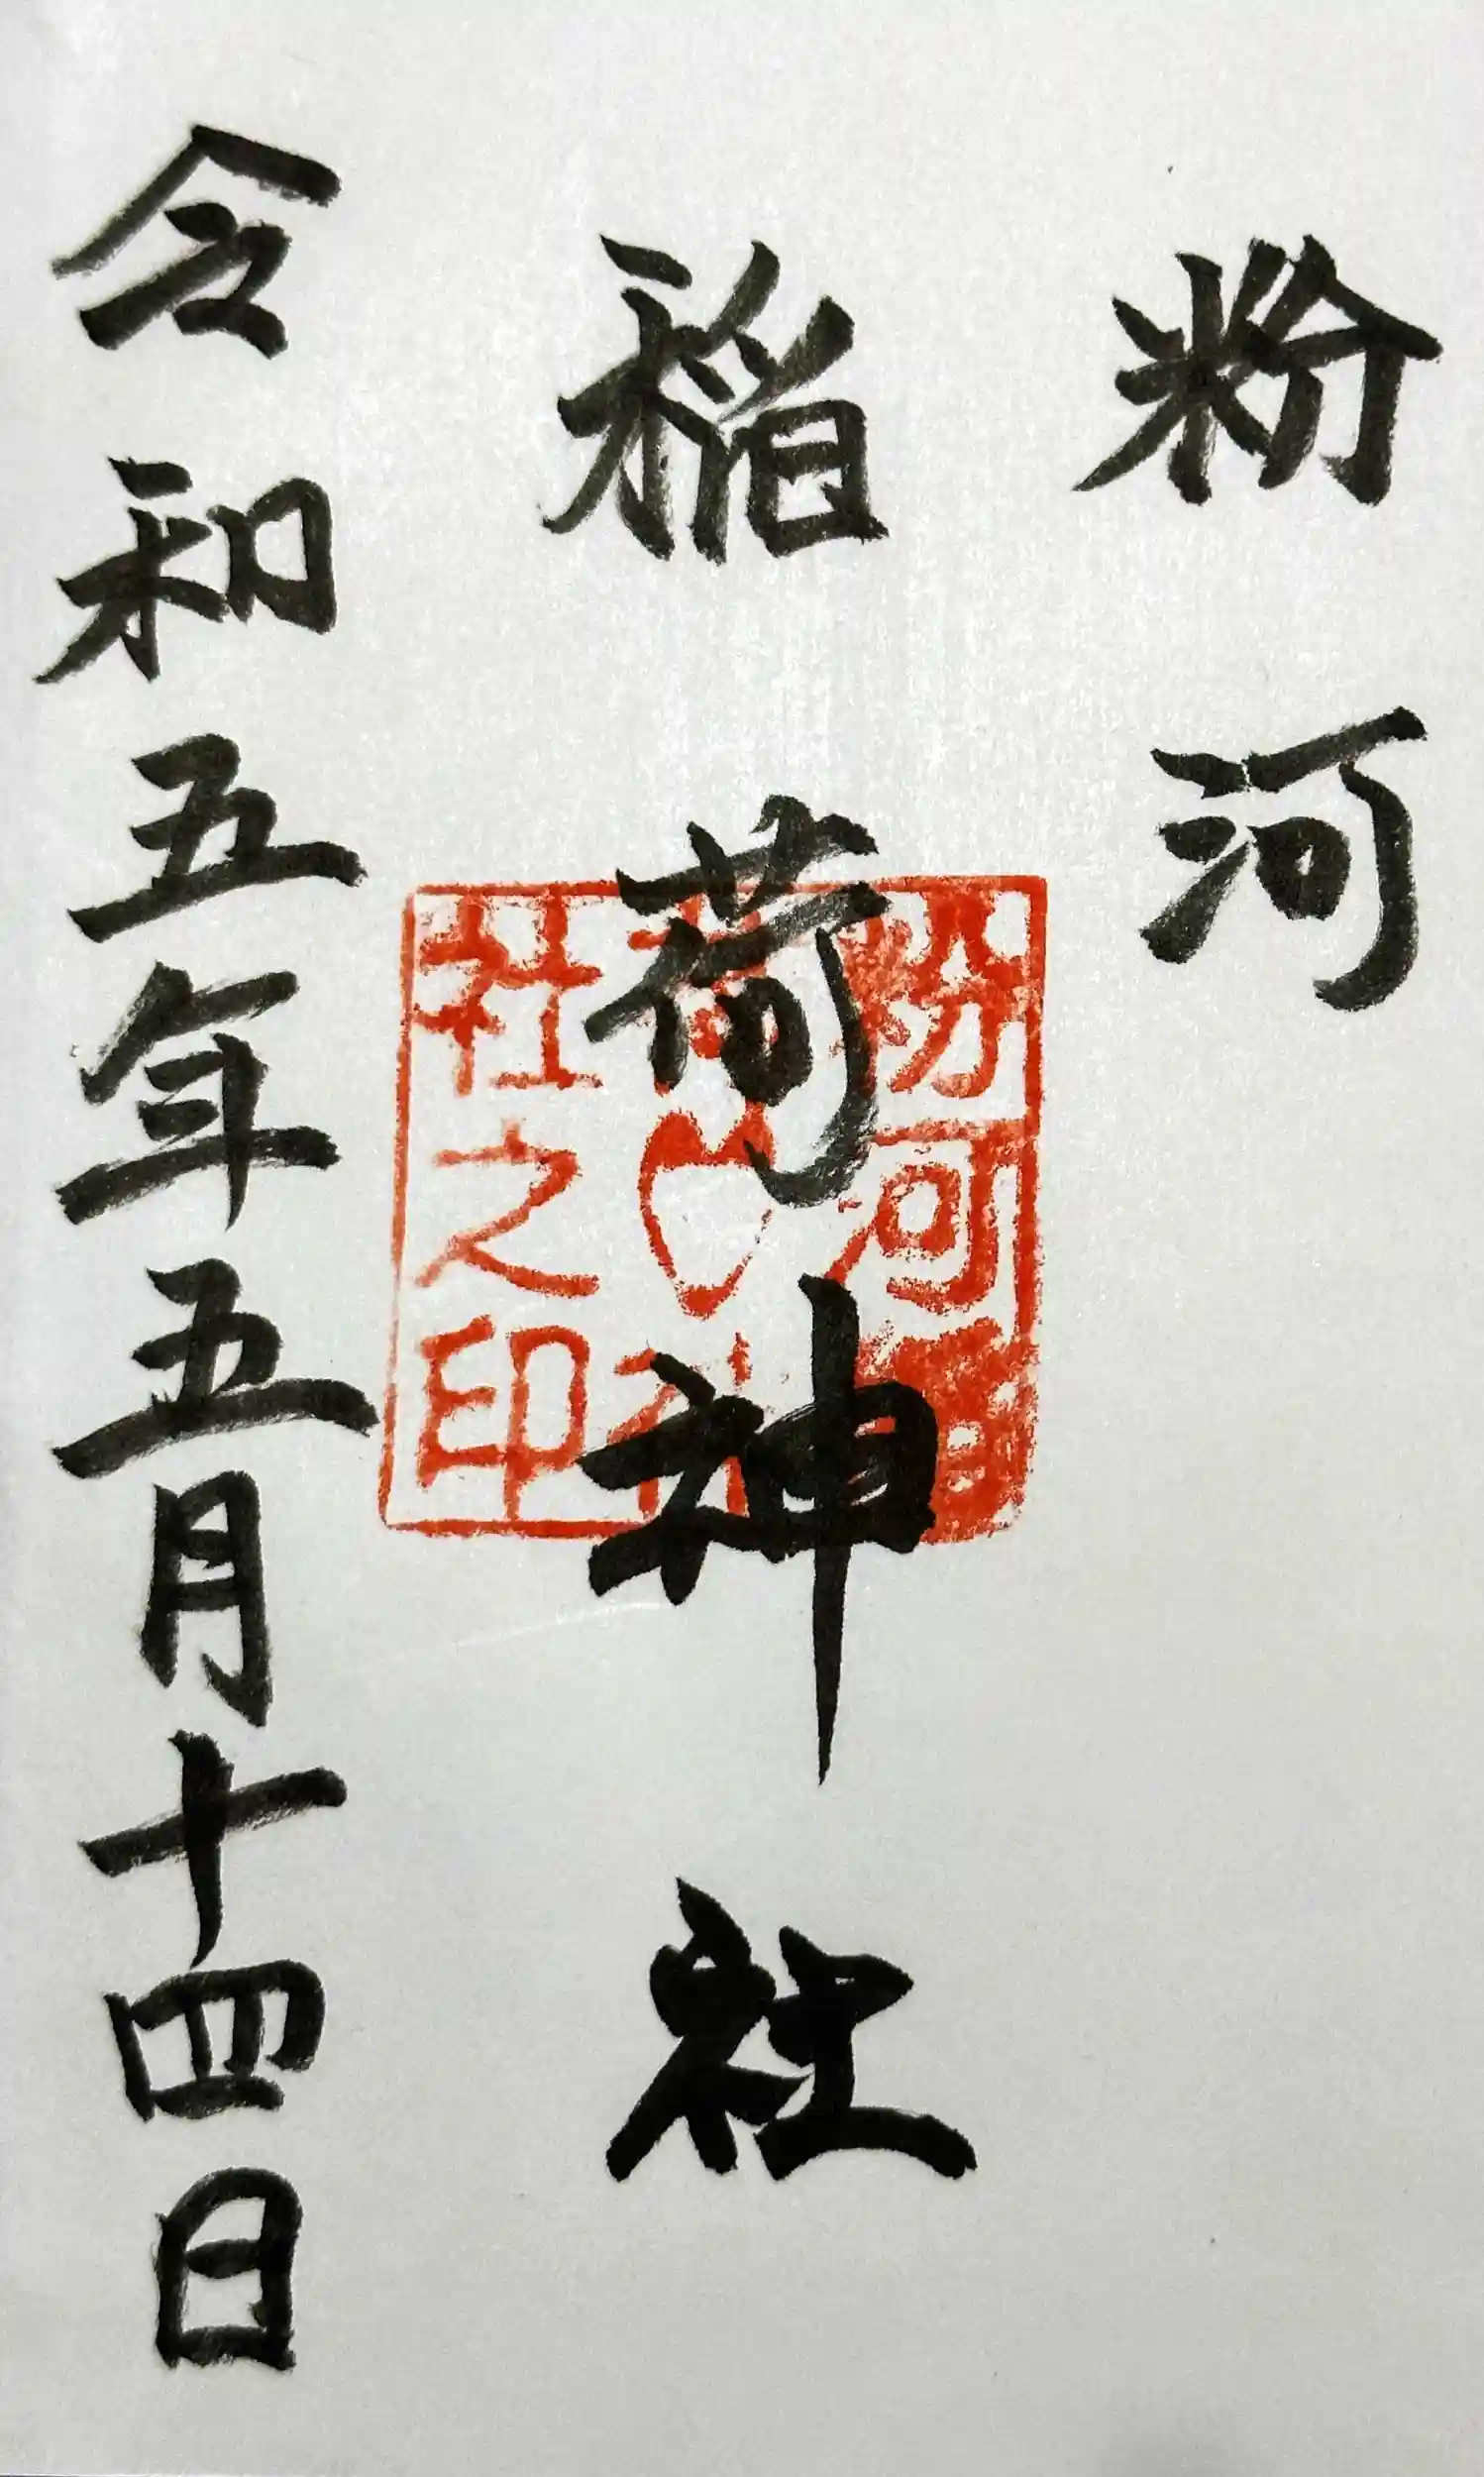 粉河
稲荷神社
令和五年五月十四日
粉河稲
荷
社之印